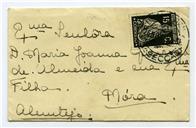 Exma Senhora
D. Maria Joanna
de Almeida e sua Exma
Filha
Móra
Alemtejo